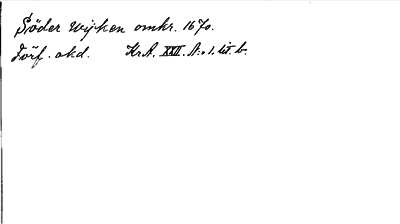 Söder Wijken omkr. 1670.
Förf. okd. Kr.A. XXII. A:1. lit. b.